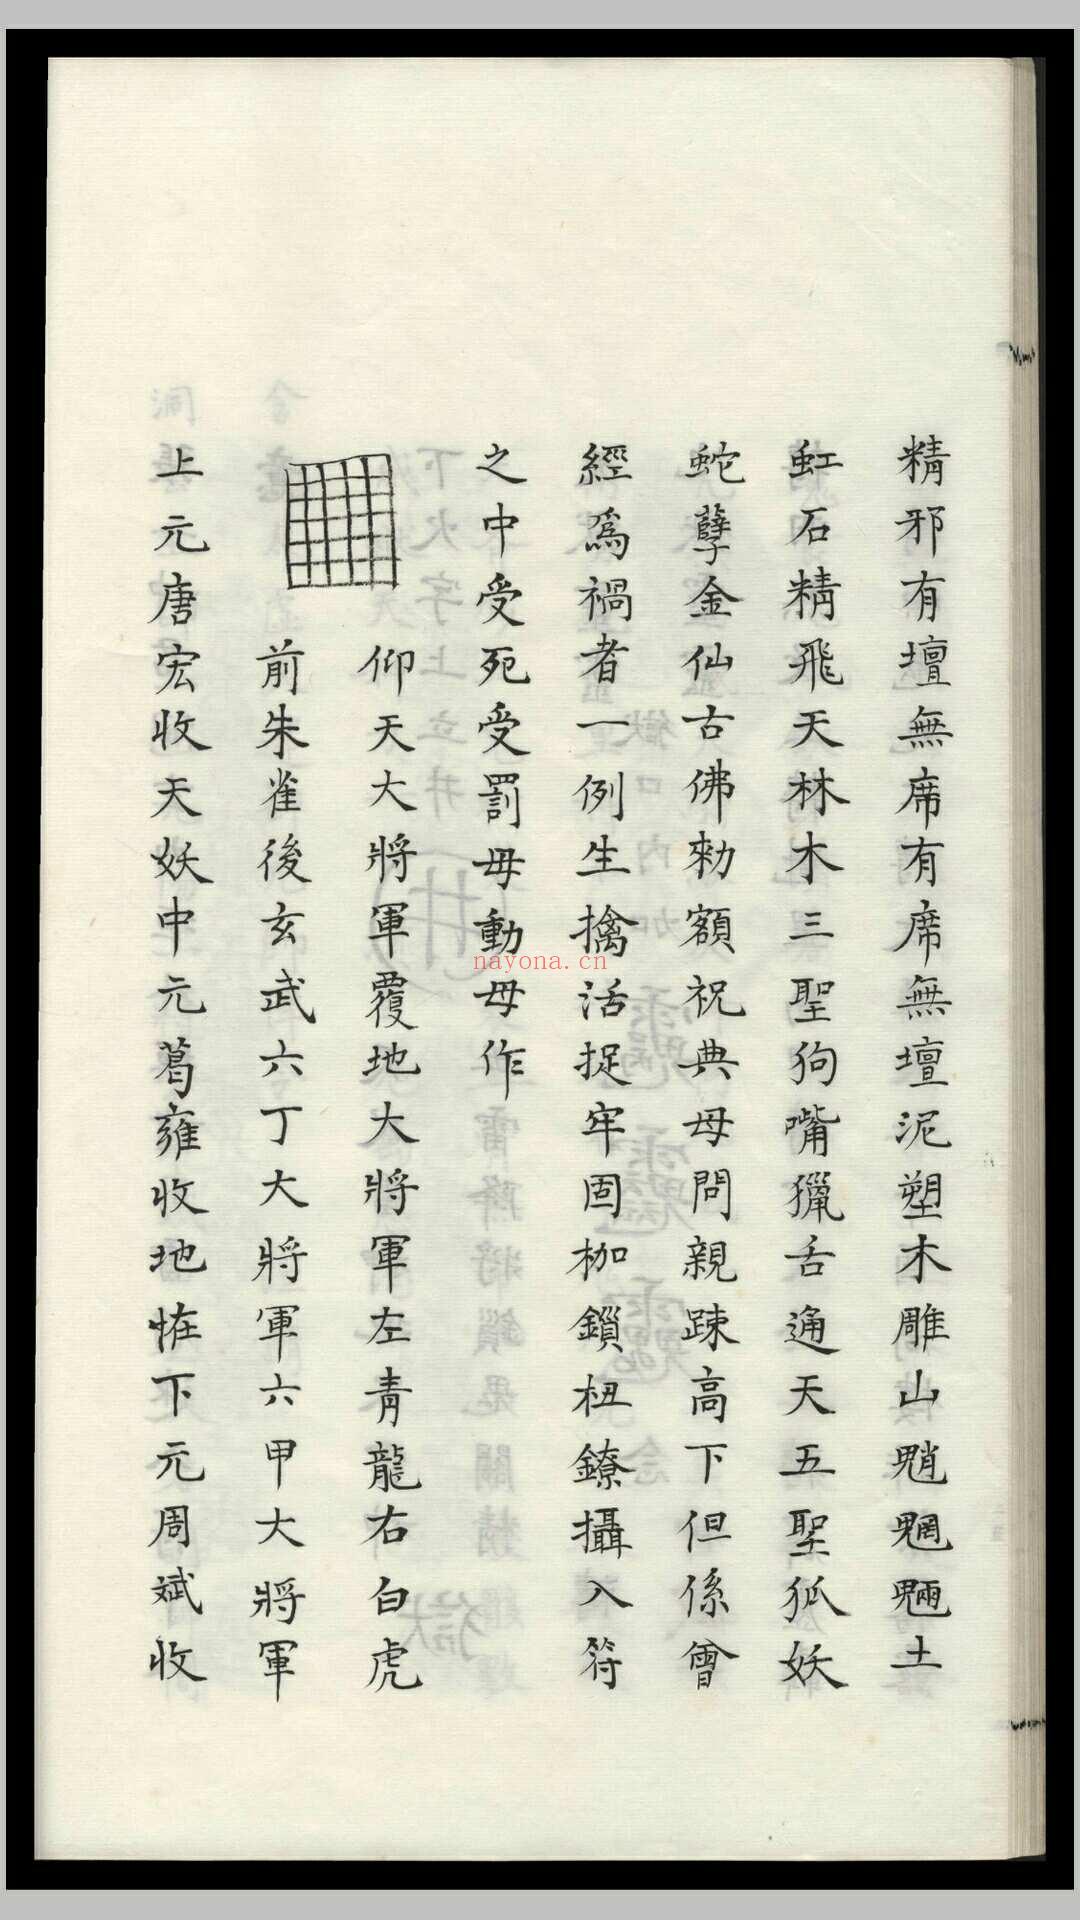 精邪有壇無席有席無壇泥塑木雕山魈魍魎土
虹石精飛天林木三聖狗嘴獵舌通天五聖狐妖
蛇孽金仙古佛勅額祝典毋問親疎高下但係曾
經爲禍者一例生擒活捉牢固枷鎖杻鐐攝入符
之中受死受罰毋動毋作
仰天大將軍覆地大將軍左青龍右白虎
前朱雀後玄武六丁大將軍六甲大將軍
上元唐宏收天妖中元葛雍收地恠下元周斌收
nayona.cn